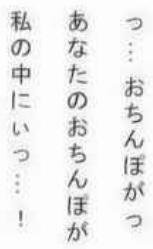 っ…おちんぽがっ
あなたのおちんぽが
私の中にいっ…！